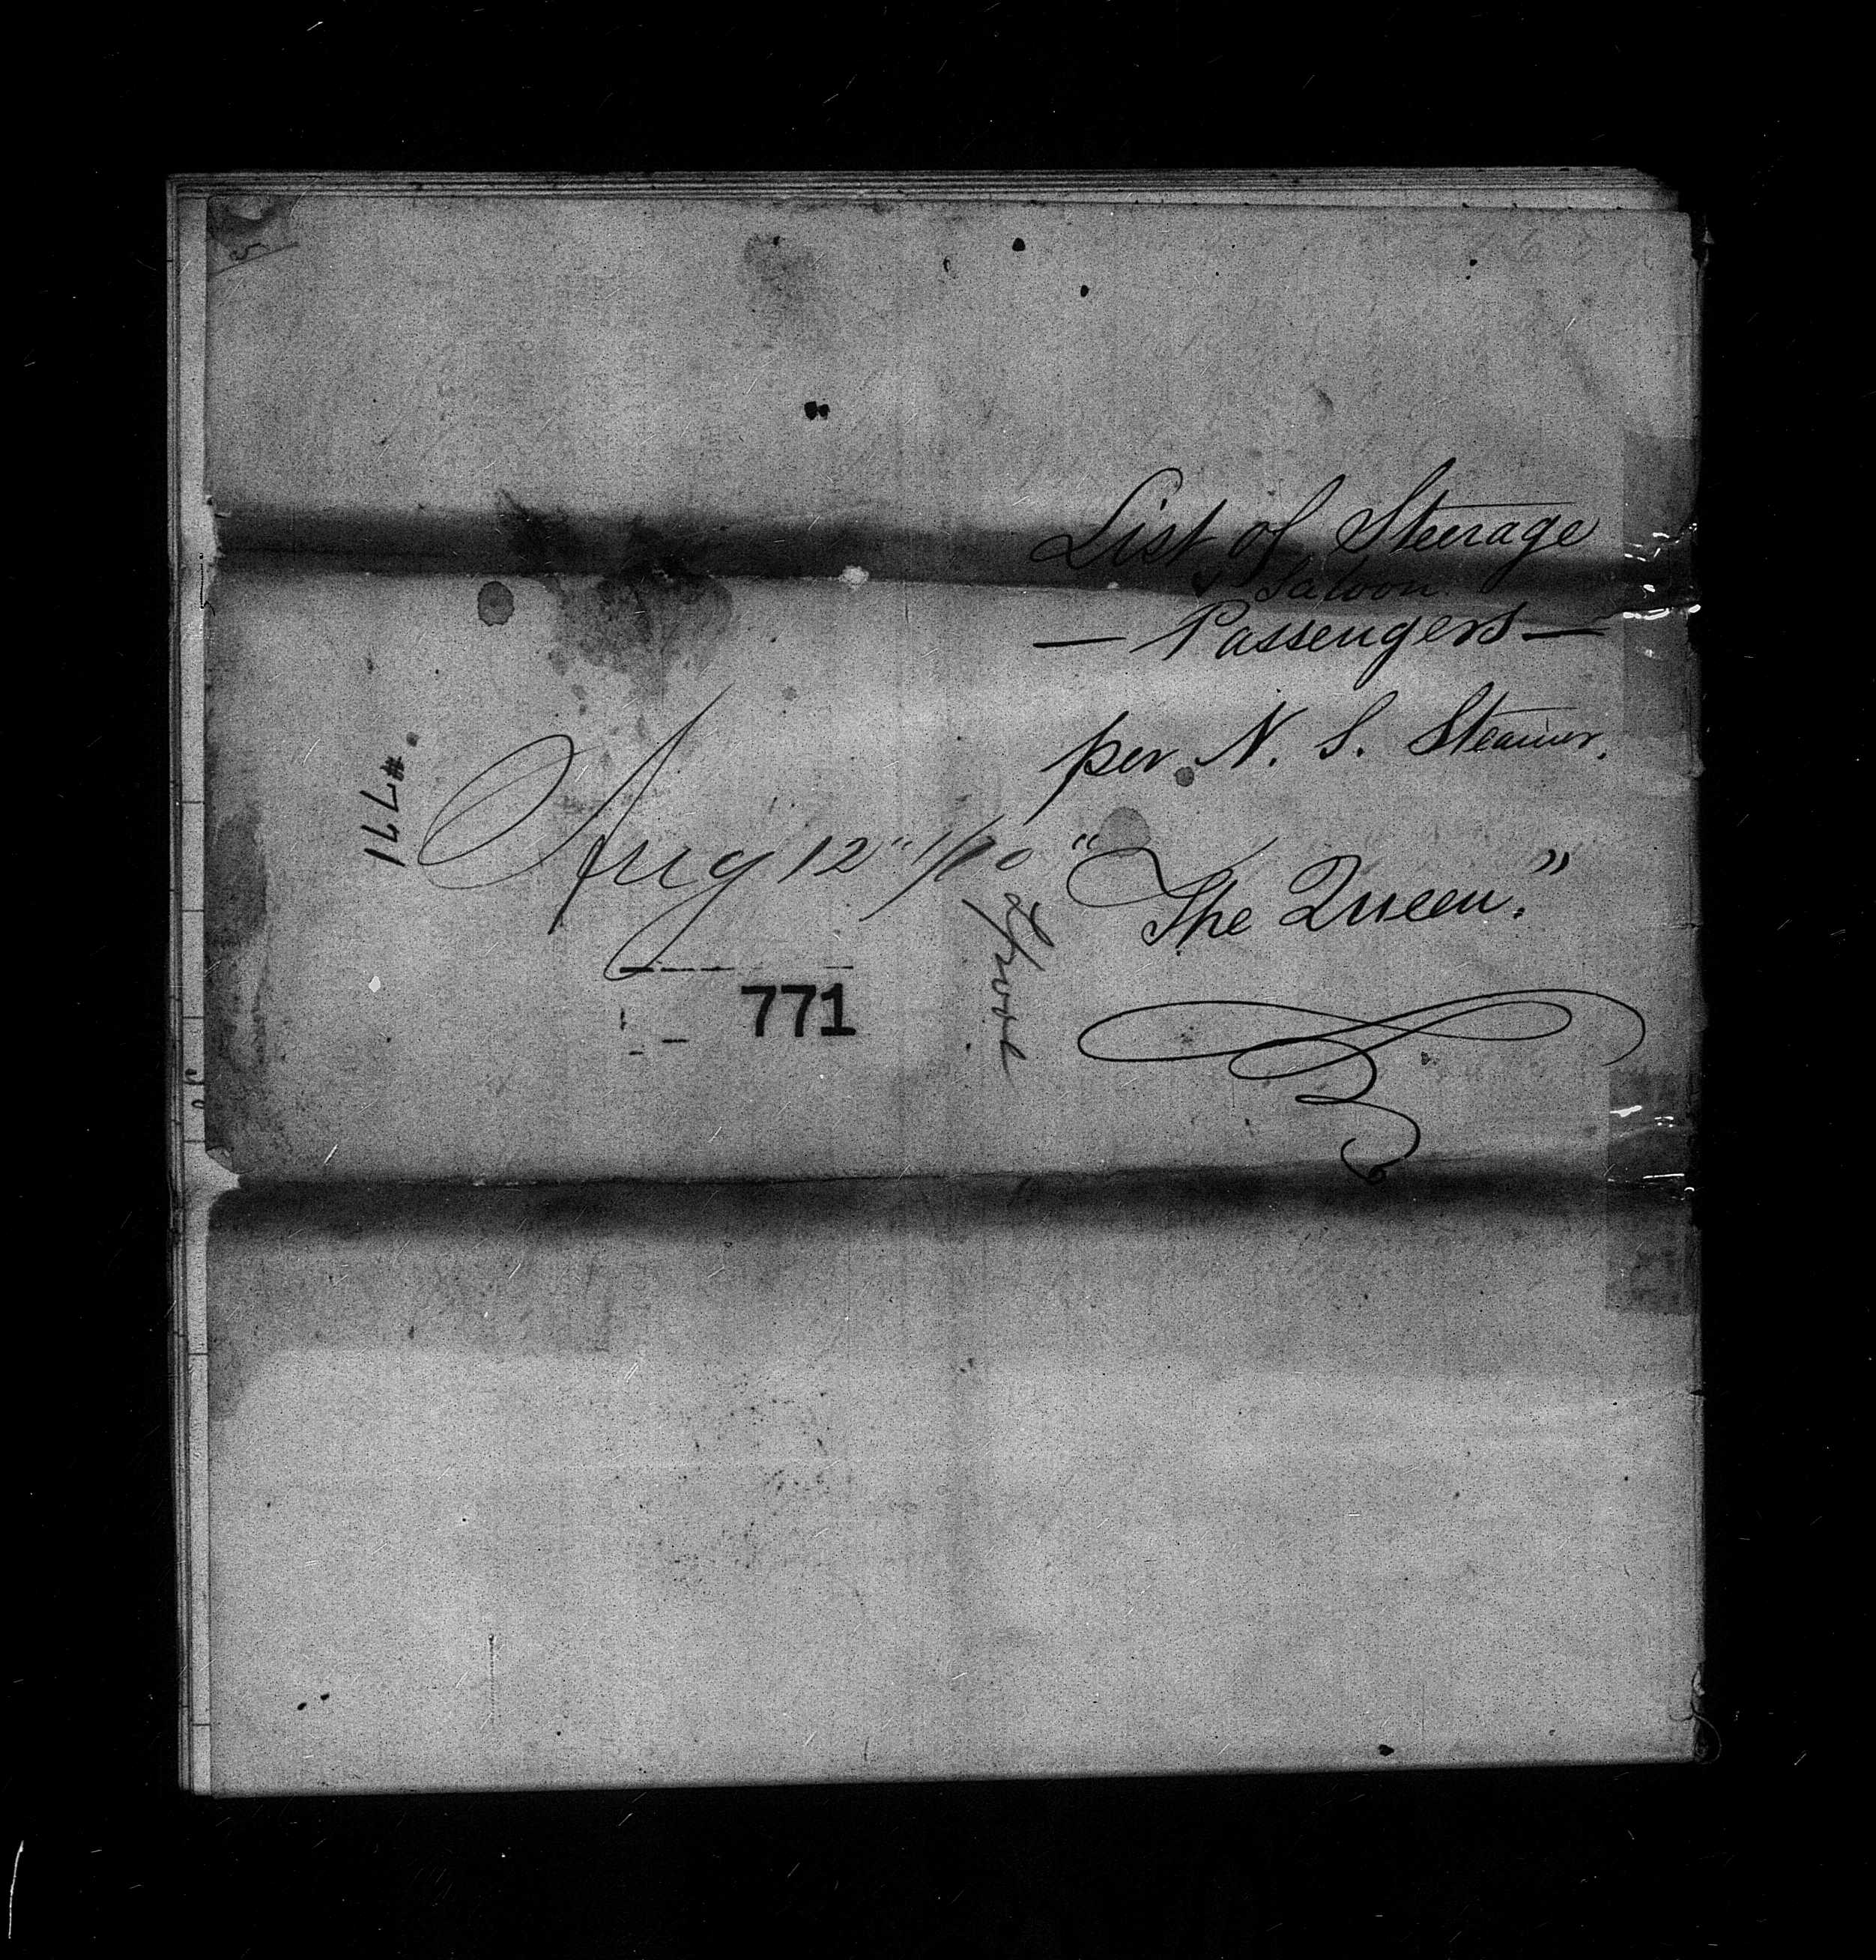 List of Steerage
& Saloon
— Passengers —
per N. S. Steamer.
"The Queen."
Aug 12" 1/70
#771
771